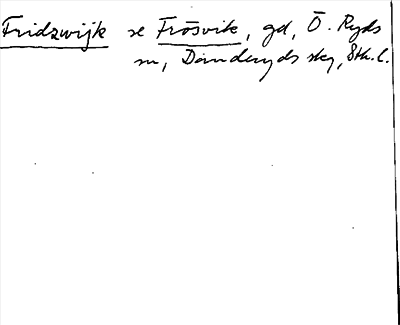 Fridzwijk se Frösvik, gd, Ö. Ryds
sn, Danderyds skg, Sth. l.